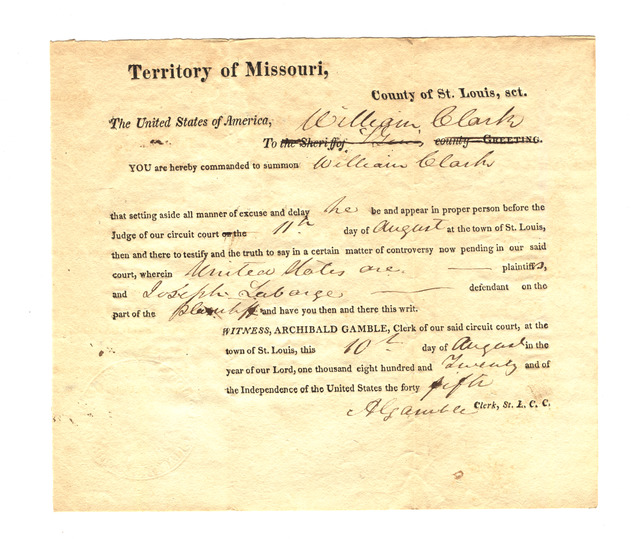 Territory of Missouri,
County of St. Louis, sct.
The United States of America,
William Clark
To the Sheriff of St Louis county GREETING.
YOU are hereby commanded to summon William Clark
that setting aside all manner of excuse and delay he be and appear in proper person before the
Judge of our circuit court on the 11th day of August at the town of St. Louis,
then and there to testify and the truth to say in a certain matter of controversy now pending in our said
court, wherein United States are plaintiffs,
and Joseph Labarge defendant on the
part of the plaintiff and have you then and there this writ.
WITNESS, ARCHIBALD GAMBLE, Clerk of our said circuit court, at the
town of St. Louis, this 10th day of August in the
year of our Lord, one thousand eight hundred and Twenty and of
the Independence of the United States the forty fifth
A Gamble Clerk, St. L. C. C.